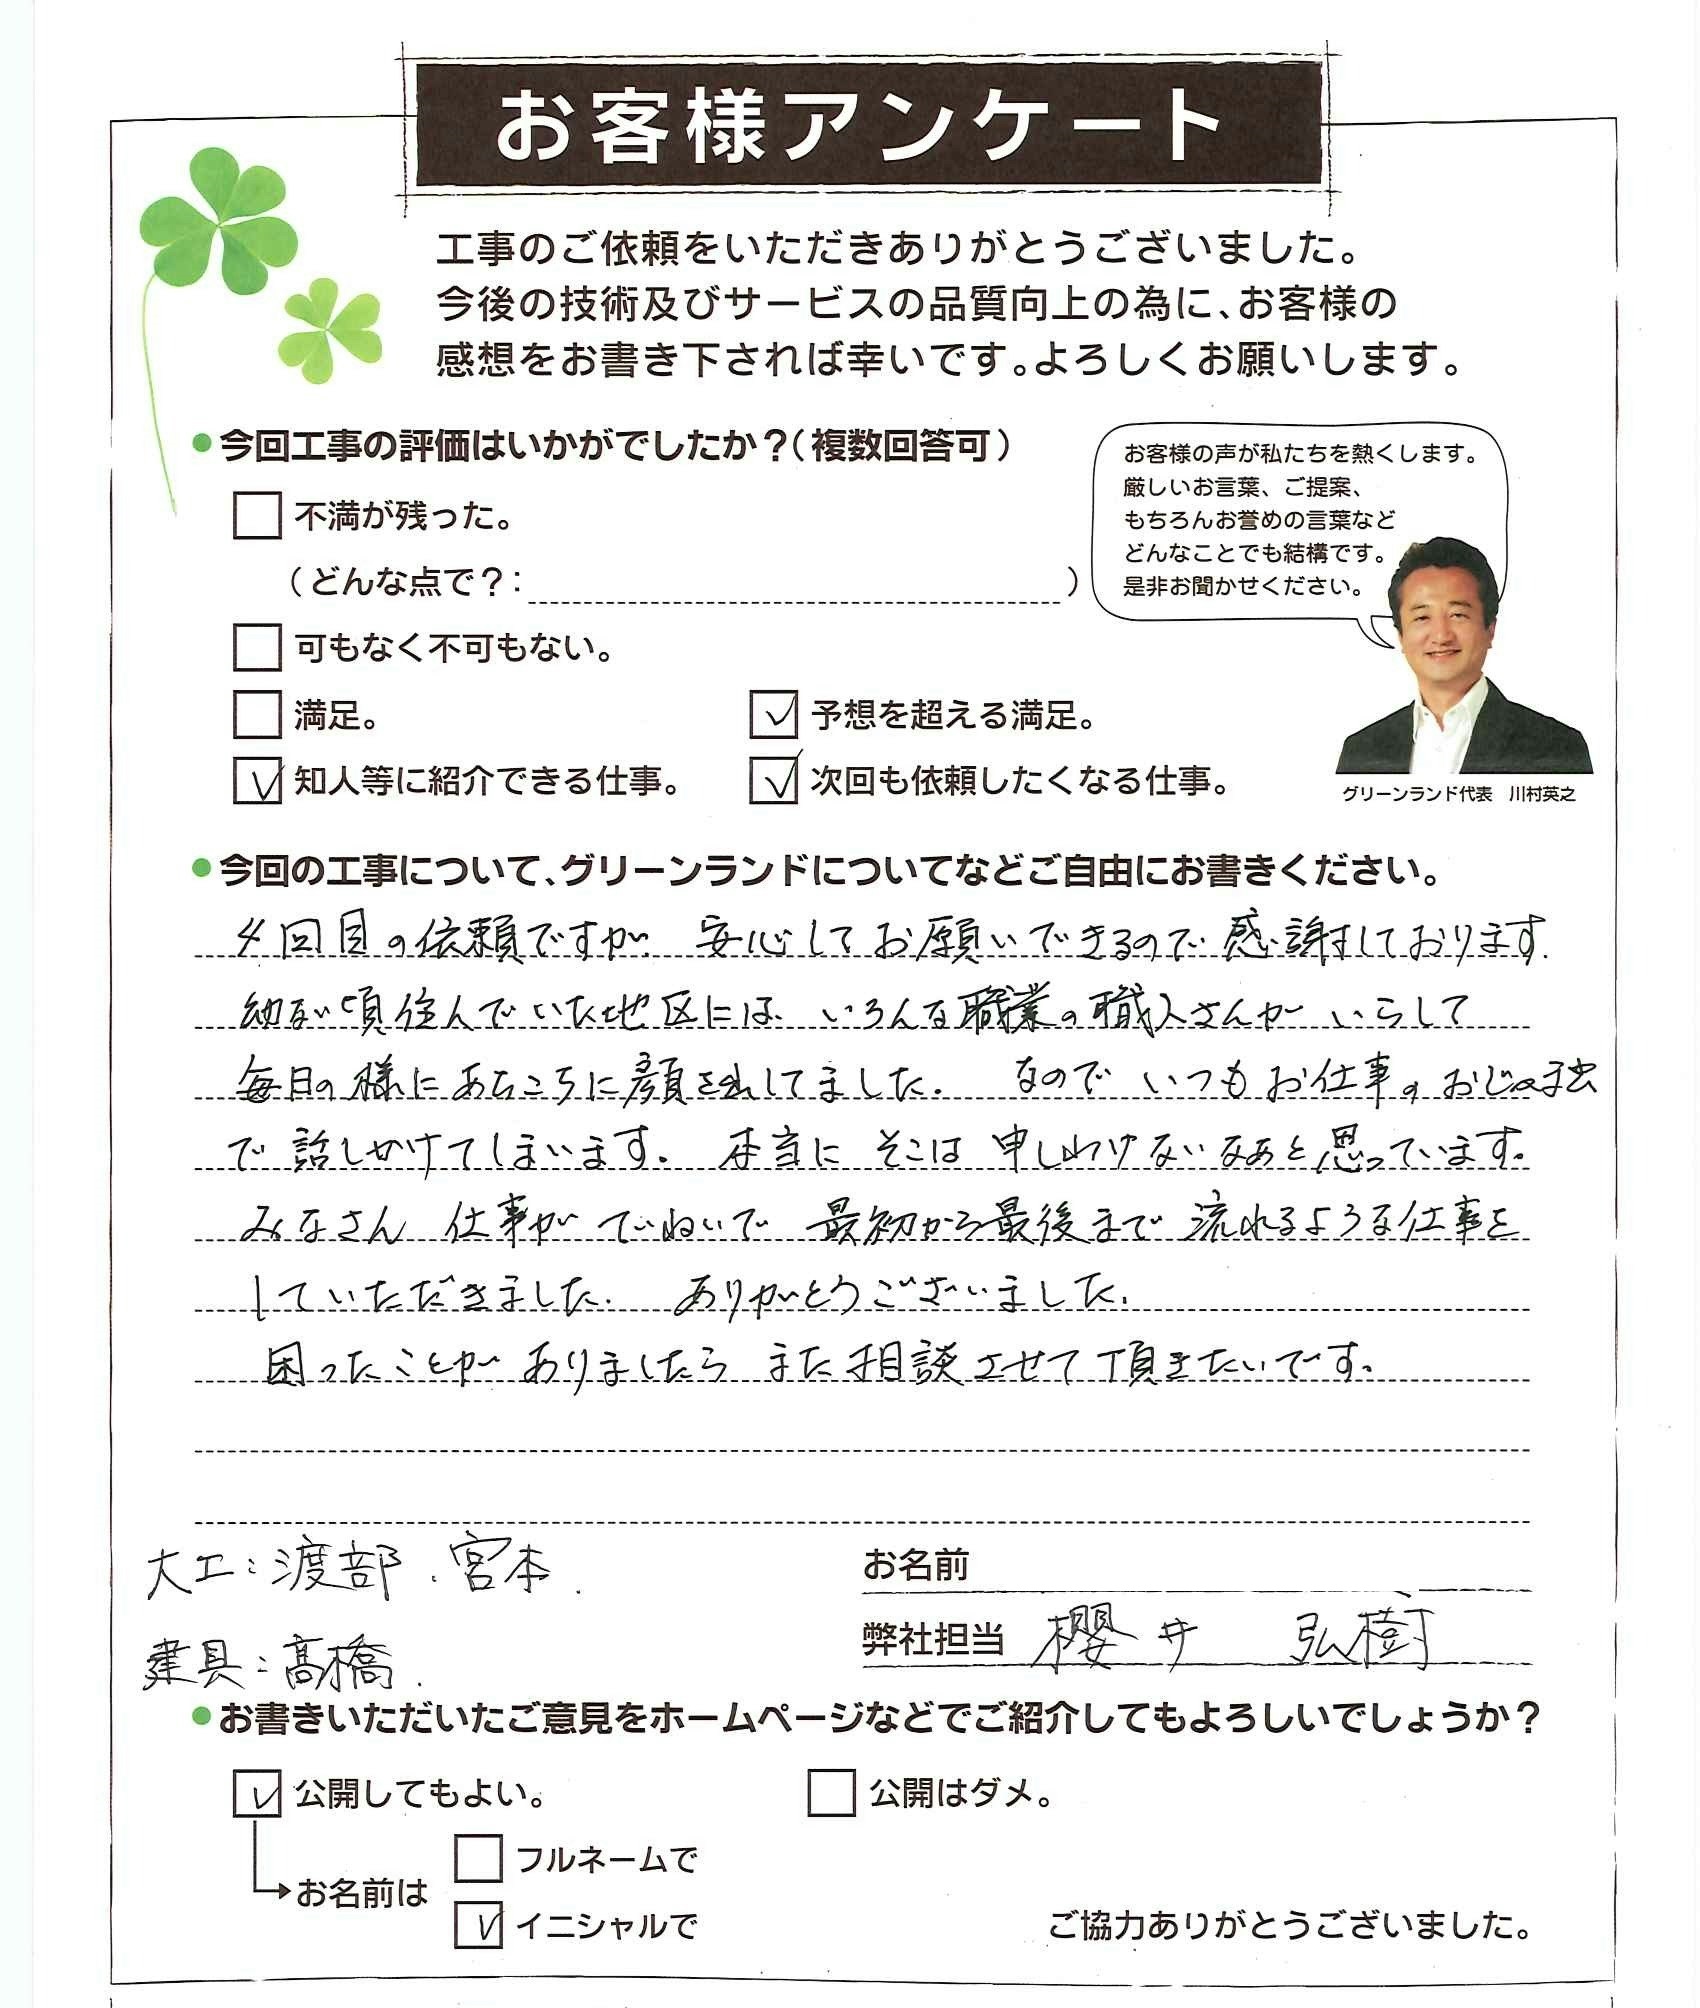 お客様アンケート
工事のご依頼をいただきありがとうございました。
今後の技術及びサービスの品質向上の為に、お客様の
感想をお書き下されば幸いです。よろしくお願いします。
●今回工事の評価はいかがでしたか？（複数回答可）
不満が残った。
（どんな点で？：　）
可もなく不可もない。
満足。
予想を超える満足。
知人等に紹介できる仕事。
次回も依頼したくなる仕事。
お客様の声が私たちを熱くします。
厳しいお言葉、ご提案、
もちろんお誉めの言葉など
どんなことでも結構です。
是非お聞かせください。
グリーンランド代表　川村英之
●今回の工事について、グリーンランドについてなどご自由にお書きください。
4回目の依頼ですが、安心してお願いできるので感謝しております.
幼ない頃住んでいた地区には、いろんな職業の職人さんが いらして
毎日の様にあちこちに顔を出してました. なので いつもお仕事の おじゃま虫
で 話しかけてしまいます。 本当に そこは 申しわけないなぁと思っています。
みなさん 仕事が ていねいで 最初から最後まで 流れるような仕事を
していただきました. ありがとうございました.
困ったことが ありましたら また相談させて頂きたいです。
大工：渡部、宮本.
建具：髙橋.
お名前
弊社担当 櫻井 弘樹
●お書きいただいたご意見をホームページなどでご紹介してもよろしいでしょうか？
公開してもよい。
公開はダメ。
お名前は
フルネームで
イニシャルで
ご協力ありがとうございました。